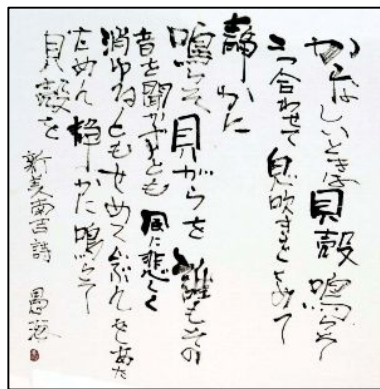 かなしいときは貝殻鳴らそ
二つ合わせて息吹きをこめて
静かに
鳴らそ貝がらを誰もその
音を聞かずとも風に悲しく
消ゆるともせめてじぶんをあた
ためん静かに鳴らそ
貝殻を
新美南吉詩